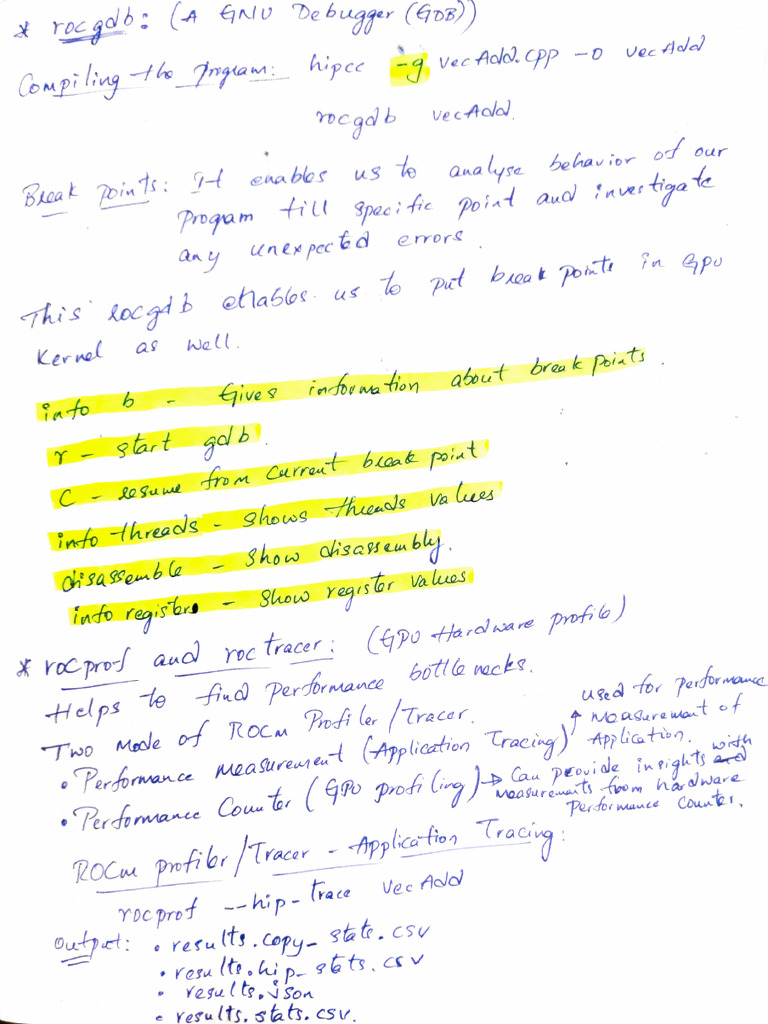 * rocgdb: (A GNU Debugger (GDB))
Compiling the program: hipcc -g vecAdd.cpp -o vecAdd
rocgdb vecAdd.
Break points: It enables us to analyse behavior of our
program till specific point and investigate
any unexpected errors.
This rocgdb enables us to put break points in GPU
Kernel as well.
info b - Gives information about break points.
r - start gdb.
C - resume from current break point
info threads - shows threads values
disassemble - show disassembly.
info registers - show register values
* rocprof and roctracer: (GPU Hardware profile)
Helps to find performance bottlenecks.
Two Mode of ROCm Profiler/Tracer.
• Performance measurement (Application Tracing) → used for performance
measurement of
Application.
• Performance Counter (GPU profiling) → Can provide insights with
measurements from hardware
Performance counter.
ROCm profiler/Tracer - Application Tracing:
rocprof --hip-trace vecAdd
Output: • results.copy_stats.csv
• results.hip_stats.csv
• results.json
• results.stats.csv.